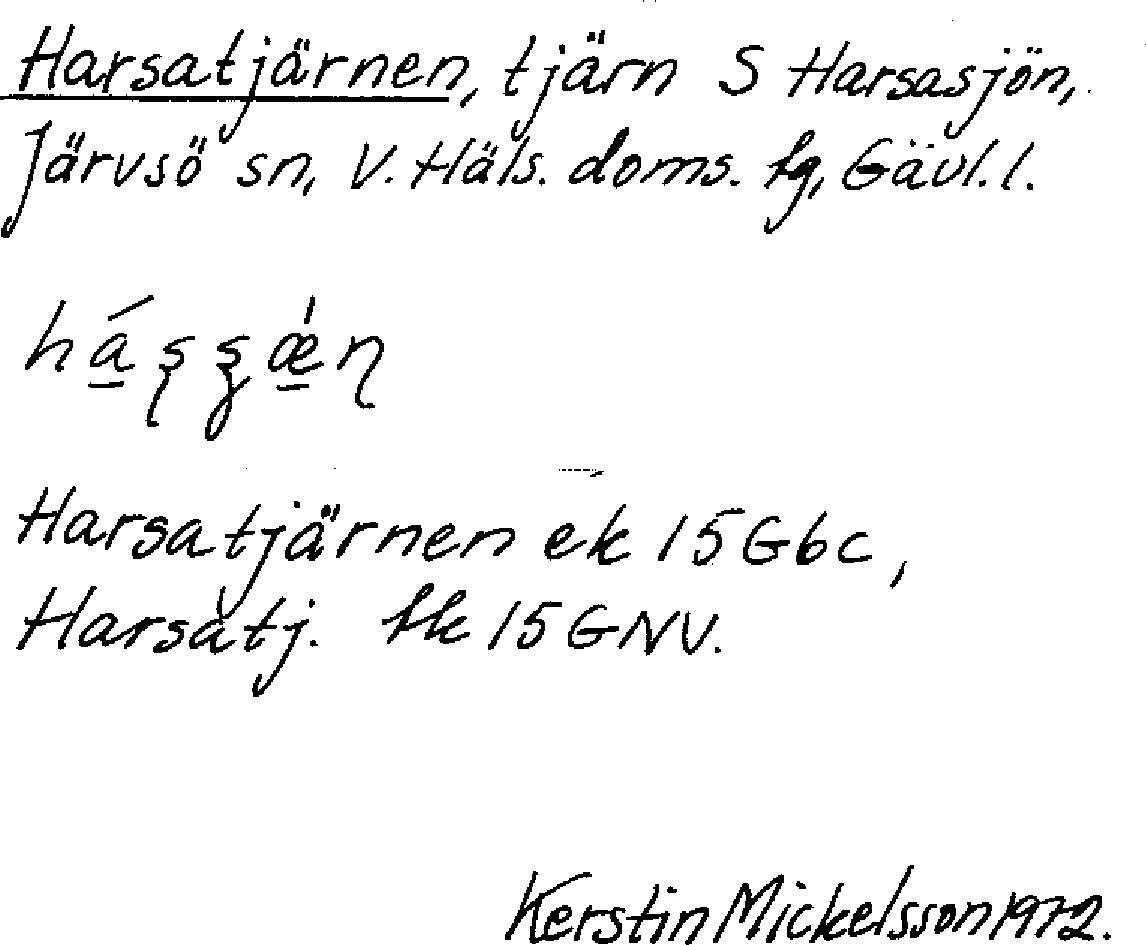 Harsatjärnen, tjärn S Harsasjön,
Järvsö sn, V. Häls. doms. tg, Gävl. l.
Harsatjärnen ek 15 G6c,
Harsatj. tk 15 GNV.
Kerstin Mickelsson 1972.